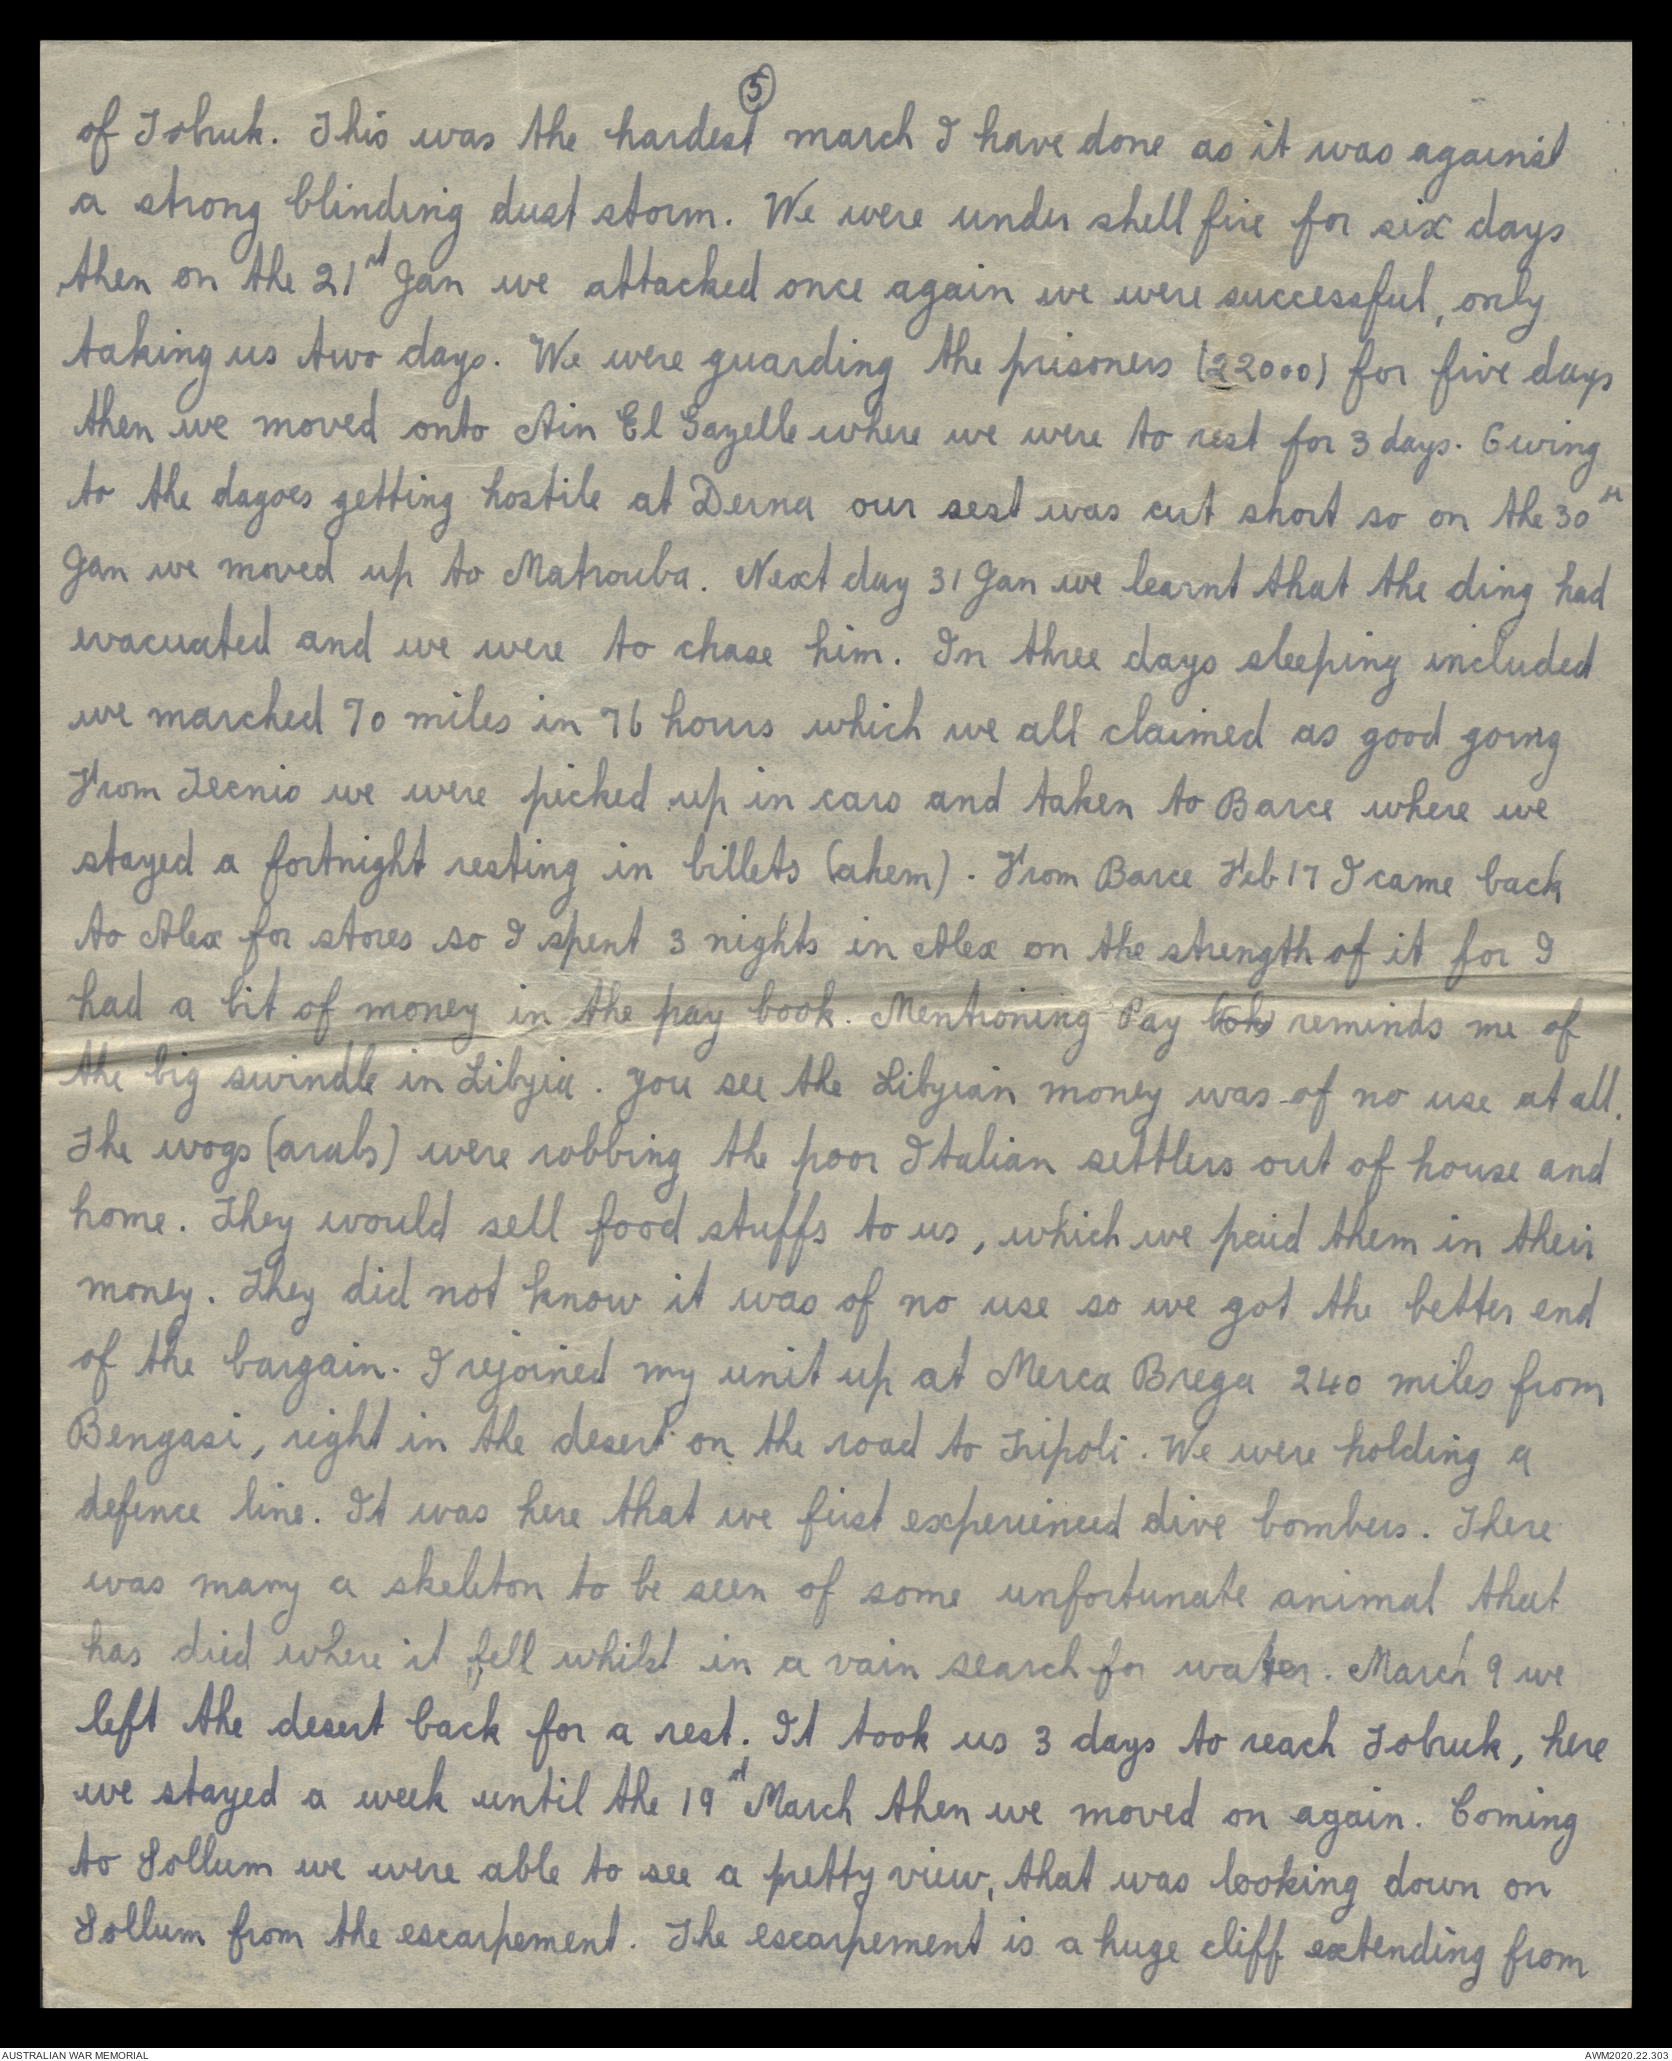 5
of Tobruk. This was the hardest march I have done as it was against
a strong blinding dust storm. We were under shell fire for six days
then on the 21st Jan we attacked once again we were successful, only
taking us two days. We were guarding the prisoners (22000) for five days
then we moved onto Ain El Gazelle where we were to rest for 3 days. Owing
to the dagoes getting hostile at Derna our rest was cut short so on the 30th
Jan we moved up to Matrouba. Next day 31 Jan we learnt that the ding had
evacuated and we were to chase him. In three days sleeping included
we marched 70 miles in 76 hours which we all claimed as good going
From Tecnis we were picked up in cars and taken to Barce where we
stayed a fortnight resting in billets (ahem). From Barce Feb 17 I came back
to Alex for stores so I spent 3 nights in Alex on the strength of it for I
had a bit of money in the pay book. Mentioning Pay book reminds me of
the big swindle in Libyia. You see the Libyian money was of no use at all.
The wogs (arabs) were robbing the poor Italian settlers out of house and
home. They would sell food stuffs to us, which we paid them in their
money. They did not know it was of no use so we got the better end
of the bargain. I rejoined my unit up at Merca Brega 240 miles from
Bengasi, right in the desert on the road to Tripoli. We were holding a
defence line. It was here that we first experienced dive bombers. There
was many a skeleton to be seen of some unfortunate animal that
has died where it fell whilst in a vain search for water. March 9 we
left the desert back for a rest. It took us 3 days to reach Tobruk, here
we stayed a week until the 19st March then we moved on again. Coming
to Sollum we were able to see a pretty view, that was looking down on
Sollum from the escarpement. The escarpement is a huge cliff extending from
AUSTRALIAN WAR MEMORIAL
AWM2020.22.303